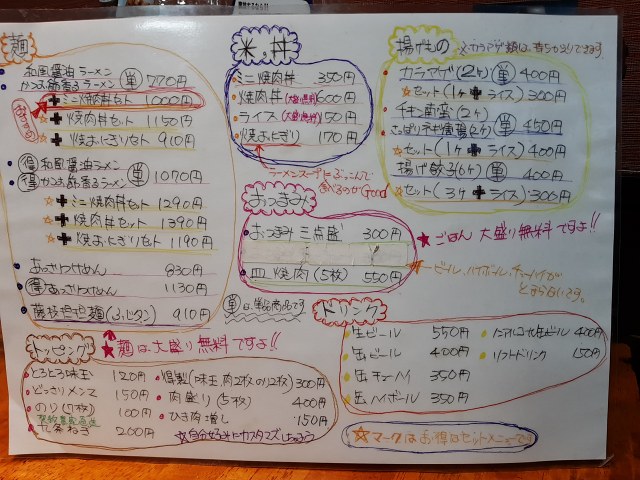 麺
和風醤油ラーメン
かつお節香るラーメン 単 770円
☆➕ミニ焼肉丼セット 1000円
☆➕焼肉丼セット 1150円
☆➕焼おにぎりセット 910円
得 和風醤油ラーメン
得 かつお節香るラーメン 単 1070円
☆➕ミニ焼肉丼セット 1290円
☆➕焼肉丼セット 1390円
☆➕焼おにぎりセット 1190円
あっさりつけめん 830円
得 あっさりつけめん 1130円
担担麺 910円
★麺は大盛り無料ですよ!!
米・丼
ミニ焼肉丼 350円
焼肉丼(大盛無料) 600円
ライス(大盛無料) 150円
焼おにぎり 170円
ラーメンスープにぶっこんで
食べるのがGood
おつまみ
おつまみ三点盛 300円
皿焼肉(5枚) 550円
単は、単品商品です
揚げもの
カラアゲ(2ケ) 単 400円
☆セット(1ケ➕ライス) 300円
チキン南蛮(2ケ)
さっぱりネギ 単 450円
☆セット(1ケ➕ライス) 400円
揚げ餃子(6ケ) 単 400円
☆セット(3ケ➕ライス) 300円
★ごはん大盛り無料ですよ!!
ビール、ハイボール、チューハイが
とまらないです。
ドリンク
生ビール 550円
缶ビール 400円
缶チューハイ 350円
缶ハイボール 350円
ノンアルコールビール 400円
ソフトドリンク 150円
☆マークはお得なセットメニューです
トッピング
とろとろ味玉 120円
どっさりメンマ 150円
のり(7枚) 100円
九条ねぎ 200円
燻製(味玉、肉2枚、のり2枚) 300円
肉盛り(5枚) 400円
ひき肉増し 150円
☆自分好みにカスタマイズしちゃおう